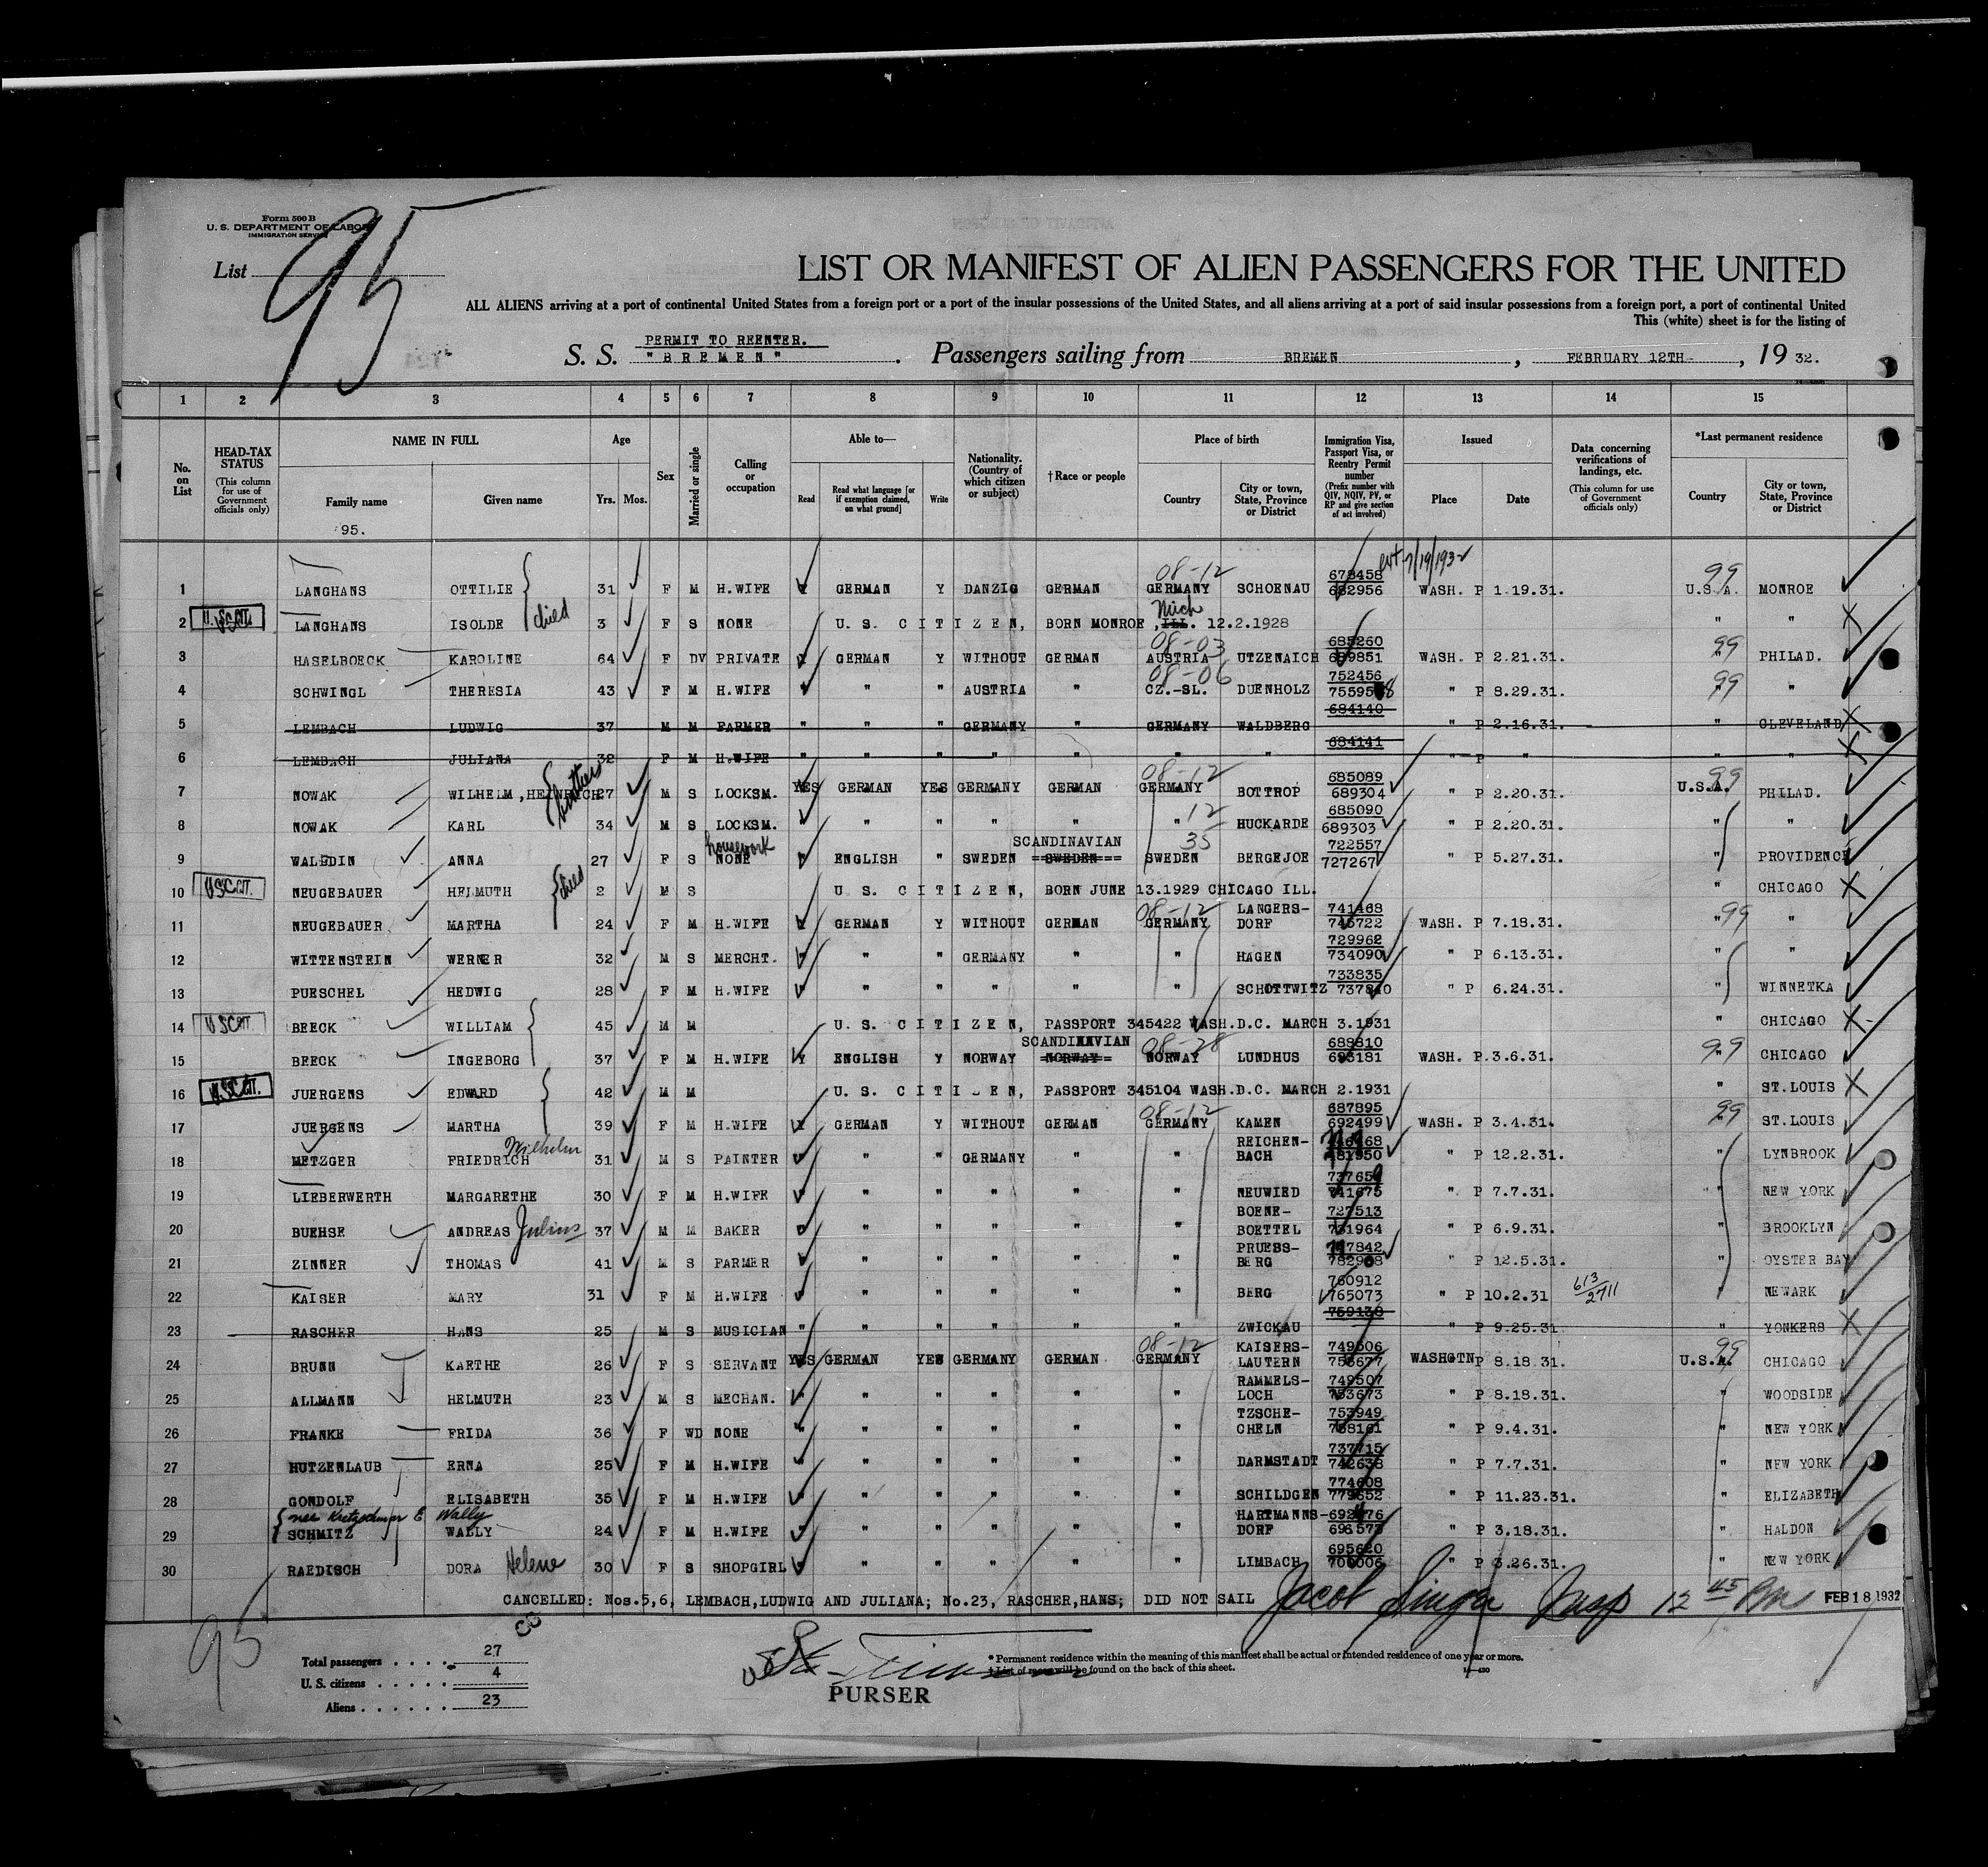 Form 500 B
U. S. DEPARTMENT OF LABOR
IMMIGRATION SERVICE
List 95
LIST OR MANIFEST OF ALIEN PASSENGERS FOR THE UNITED
ALL ALIENS arriving at a port of continental United States from a foreign port or a port of the insular possessions of the United States, and all aliens arriving at a port of said insular possessions from a foreign port, a port of continental United
This (white) sheet is for the listing of
PERMIT TO REENTER.
S. S. "BREMEN". Passengers sailing from BREMEN, FEBRUARY 12TH, 1932.
1 2 3 4 5 6 7 8 9 10 11 12 13 14 15
No. on List
HEAD-TAX STATUS (This column for use of Government officials only)
NAME IN FULL
Family name
Given name
95.
Age
Yrs. Mos.
Sex
Married or single
Calling or occupation
Able to—
Read
Read what language [or if exemption claimed, on what ground]
Write
Nationality. (Country of which citizen or subject)
†Race or people
Place of birth
Country
City or town, State, Province or District
Immigration Visa, Passport Visa, or Reentry Permit number (Prefix number with QIV, NQIV, PV, or RP and give section of act involved)
Issued
Place
Date
Data concerning verifications of landings, etc. (This column for use of Government officials only)
*Last permanent residence
Country
City or town, State, Province or District
08-12 7/19/193 99
1 LANGHANS OTTILIE 31 F M H.WIFE Y GERMAN Y DANZIG GERMAN GERMANY SCHOENAU 682956 WASH. P 1.19.31. U.S.A. MONROE
2 U.S.CIT. LANGHANS ISOLDE child 3 F S NONE U.S. CITIZEN, BORN MONROE, ILL. Mich 12.2.1928 " "
3 HASELBOECK KAROLINE 64 F DV PRIVATE GERMAN Y WITHOUT GERMAN 08-03 AUSTRIA UTZENAICH 685260 689851 WASH. P 2.21.31. 99 PHILAD.
4 SCHWINGL THERESIA 43 F M H.WIFE " " " AUSTRIA " 08-06 CZ.-SL. DUENHOLZ 752456 " P 8.29.31. 99 "
5 LEMBACH LUDWIG 37 M M FARMER " " " GERMANY " GERMANY WALDBERG 684140 " P 2.16.31. " CLEVELAND
6 LEMBACH JULIANA 32 F M H.WIFE " " " " " " " 684141 " P " " "
7 NOWAK WILHELM, HEINRICH brothers 27 M S LOCKSM. YES GERMAN YES GERMANY GERMAN 08-12 GERMANY BOTTROP 685089 689304 " P 2.20.31. U.S.A. 99 PHILAD.
8 NOWAK KARL 34 M S LOCKSM. " " " " " " 12 HUCKARDE 685090 689303 " P 2.20.31. " "
9 WALEDIN ANNA 27 F S NONE housework " ENGLISH " SWEDEN SWEDEN SCANDINAVIAN 35 SWEDEN BERGEJOE 722557 727267 " P 5.27.31. " PROVIDENCE
10 U.S.CIT. NEUGEBAUER HELMUTH child 2 M S U.S. CITIZEN, BORN JUNE 13.1929 CHICAGO ILL. " CHICAGO
11 NEUGEBAUER MARTHA 24 F M H.WIFE Y GERMAN Y WITHOUT GERMAN 08-12 GERMANY LANGERS-DORF 741468 745722 WASH. P 7.18.31. " 99 "
12 WITTENSTEIN WERNER 32 M S MERCHT. " " " GERMANY " " HAGEN 729962 734090 " P 6.13.31. " "
13 PUESCHEL HEDWIG 28 F M H.WIFE " " " " " " SCHOTTWITZ 733835 " P 6.24.31. " WINNETKA
14 U.S.CIT. BEECK WILLIAM 45 M M U.S. CITIZEN, PASSPORT 345422 WASH.D.C. MARCH 3.1931 " CHICAGO
15 BEECK INGEBORG 37 F M H.WIFE Y ENGLISH Y NORWAY NORWAY SCANDINAVIAN 08-28 NORWAY LUNDHUS 693181 WASH. P.3.6.31. 99 CHICAGO
16 U.S.CIT. JUERGENS EDWARD 42 M M U.S. CITIZEN, PASSPORT 345104 WASH.D.C. MARCH 2.1931 " ST.LOUIS
17 JUERGENS MARTHA 39 F M H.WIFE Y GERMAN Y WITHOUT GERMAN 08-12 GERMANY KAMEN 687895 692499 WASH. P 3.4.31. 99 ST.LOUIS
18 METZGER FRIEDRICH Wilhelm 31 M S PAINTER " " " GERMANY " " REICHEN-BACH " P 12.2.31. " LYNBROOK
19 LIEBERWERTH MARGARETHE 30 F M H.WIFE " " " " " " NEUWIED 741675 " P 7.7.31. " NEW YORK
20 BUEHSE ANDREAS Julius 37 M M BAKER " " " " " " BOENE-BOETTEL 727513 731964 " P 6.9.31. " BROOKLYN
21 ZINNER THOMAS 41 M S FARMER " " " " " " PRUEBS-BERG " P 12.5.31. " OYSTER BAY
22 KAISER MARY 31 F M H.WIFE " " " " " " BERG 760912 765073 " P 10.2.31 613/2711 " NEWARK
23 RASCHER HANS 25 M S MUSICIAN " " " " " " ZWICKAU 759138 " P 9.25.31 " YONKERS
24 BRUNN KAETHE 26 F S SERVANT YES GERMAN YES GERMANY GERMAN 08-12 GERMANY KAISERS-LAUTERN 749506 WASHGTN P 8.18.31. U.S.A. 99 CHICAGO
25 ALLMANN HELMUTH 23 M S MECHAN. " " " " " " RAMMELS-LOCH 749507 753673 " P 8.18.31. " WOODSIDE
26 FRANKE FRIDA 36 F WD NONE " " " " " " TZSCHE-CHELN 753949 758161 " P 9.4.31. " NEW YORK
27 HUTZENLAUB ERNA 25 F M H.WIFE " " " " " " DARMSTADT 737715 742638 " P 7.7.31. " NEW YORK
28 GONDOLF ELISABETH 35 F M H.WIFE " " " " " " SCHILDGEN 774608 779652 " P 11.23.31. " ELIZABETH
nee Kretzschmar E Wally
29 SCHMITZ WALLY 24 F M H.WIFE " " " " " " HARTMANNS-DORF " P 3.18.31. " HALDON
30 RAEDISCH DORA Helene 30 F S SHOPGIRL " " " " " " LIMBACH 695620 700006 " P 3.26.31. " NEW YORK
CANCELLED: Nos.5,6, LEMBACH,LUDWIG AND JULIANA; No.23, RASCHER,HANS; DID NOT SAIL Jacob Singer Insp 12 45 Pm FEB 18 1932
95
Total passengers . . . . 27
U. S. citizens . . . . . 4
Aliens . . . . . . 23
PURSER
* Permanent residence within the meaning of this manifest shall be actual or intended residence of one year or more.
† List of races will be found on the back of this sheet.